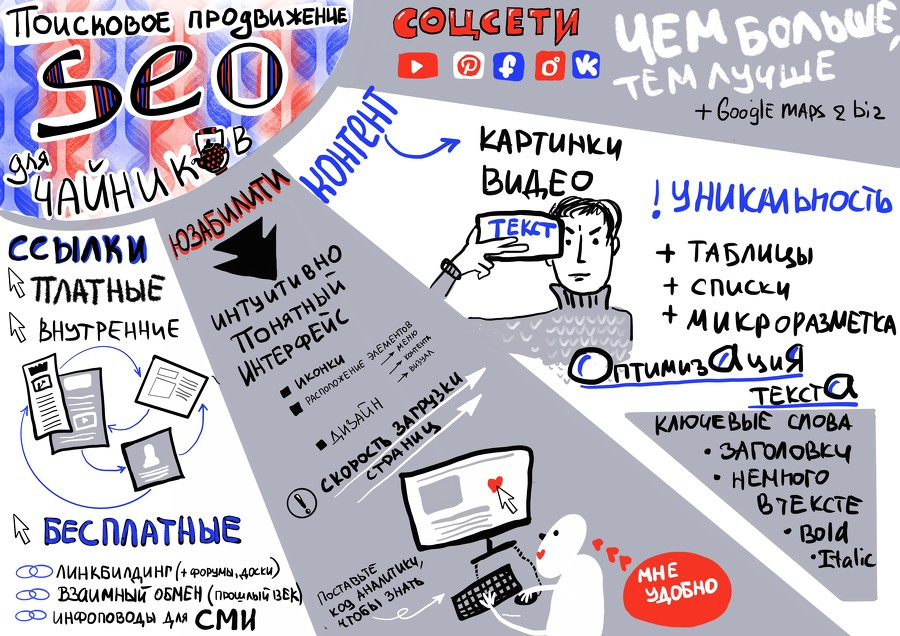 Поисковое продвижение
Seo
для
чайников
СОЦСЕТИ
ЧЕМ БОЛЬШЕ,
ТЕМ ЛУЧШЕ
+ Google maps & biz
КОНТЕНТ
КАРТИНКИ
ВИДЕО
ТЕКСТ
! УНИКАЛЬНОСТЬ
+ ТАБЛИЦЫ
+ СПИСКИ
+ МИКРОРАЗМЕТКА
ОптимизАция
ТЕКСТа
КЛЮЧЕВЫЕ СЛОВА
• ЗАГОЛОВКИ
• НЕМНОГО
В ТЕКСТЕ
• Bold
• Italic
ЮЗАБИЛИТИ
ИНТУИТИВНО
ПОНЯТНЫЙ
ИНТЕРФЕЙС
ИКОНКИ
РАСПОЛОЖЕНИЕ ЭЛЕМЕНТОВ
МЕНЮ
КОНТЕНТА
ВИЗУАЛ
ДИЗАЙН
! СКОРОСТЬ ЗАГРУЗКИ
СТРАНИЦ
ПОСТАВЬТЕ
КОД АНАЛИТИКИ,
ЧТОБЫ ЗНАТЬ
МНЕ
УДОБНО
ССЫЛКИ
ПЛАТНЫЕ
ВНУТРЕННИЕ
БЕСПЛАТНЫЕ
ЛИНКБИЛДИНГ (+ ФОРУМЫ, ДОСКИ)
ВЗАИМНЫЙ ОБМЕН (ПРОШЛЫЙ ВЕК)
ИНФОПОВОДЫ ДЛЯ СМИ